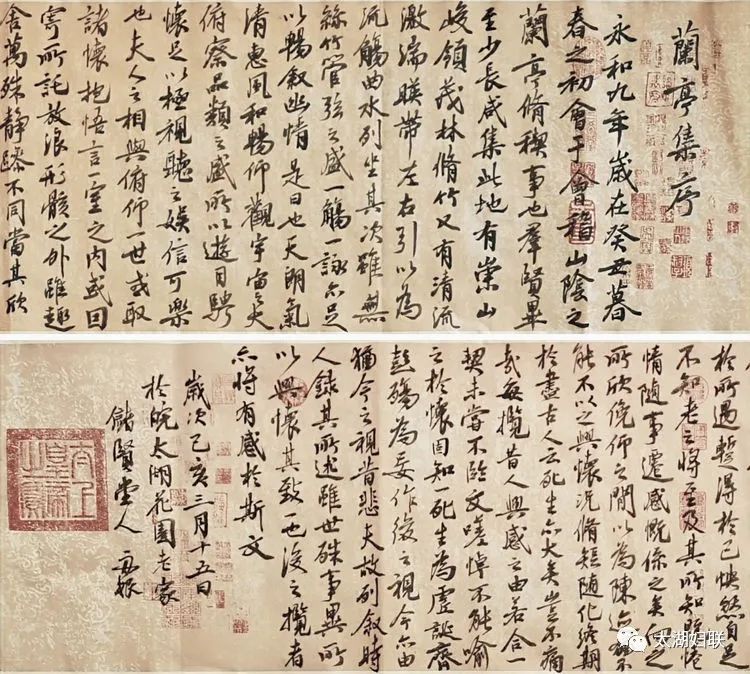 蘭亭集序
永和九年歲在癸丑暮
春之初會于會稽山陰之
蘭亭脩稧事也羣賢畢
至少長咸集此地有崇山
峻領茂林脩竹又有清流
激湍暎帶左右引以為
流觴曲水列坐其次雖無
絲竹管弦之盛一觴一詠亦足
以暢敘幽情是日也天朗氣
清惠風和暢仰觀宇宙之大
俯察品類之盛所以遊目騁
懷足以極視聽之娛信可樂
也夫人之相與俯仰一世或取
諸懷抱悟言一室之內或因
寄所託放浪形骸之外雖趣
舍萬殊靜躁不同當其欣
於所遇蹔得於己怏然自足
不知老之將至及其所知既惓
情隨事遷感慨係之矣向之
所欣俛仰之間以為陳迹猶不
能不以之興懷況脩短隨化終期
於盡古人云死生亦大矣豈不痛
哉每攬昔人興感之由若合一
契未嘗不臨文嗟悼不能喻
之於懷固知一死生為虛誕齊
彭殤為妄作後之視今亦由
猶今之視昔悲夫故列敘時
人錄其所述雖世殊事異所
以興懷其致一也後之攬者
亦將有感於斯文
歲次己亥三月十五日
於皖太湖花園老家
儲賢堂人
太湖妇联